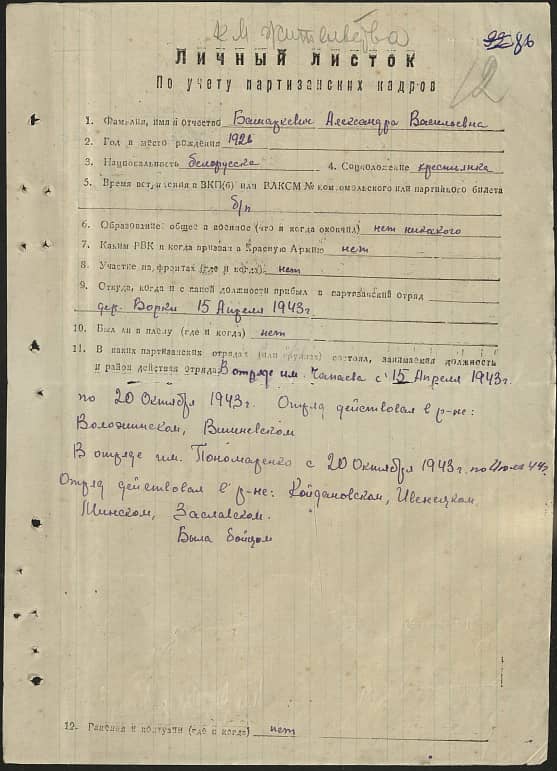 к м жительства
86
Личный листок
12
По учету партизанских кадров
1. Фамилия, имя и отчество Башаркевич Александра Васильевна
2. Год и место рождения 1926
3. Национальность белорусска 4. Соцположение крестьянка
5. Время вступления в ВКП(б) или ВЛКСМ № комсомольского или партийного билета
б/п
6. Образование: общее и военное (что и когда окончил) нет никакого
7. Каким РВК и когда призван в Красную Армию нет
8. Участие на фронтах (где и когда) нет
9. Откуда, когда и с какой должности прибыл в партизанский отряд
дер. Ворки 15 Апреля 1943 г.
10. Был ли в плену (где и когда) нет
11. В каких партизанских отрядах (или группах) состоял, занимаемая должность
и район действия отряда В отряде им. Чапаева с 15 Апреля 1943 г.
по 20 Октября 1943 г. Отряд действовал в р-не:
Воложинском, Вишневском
В отряде им. Пономаренко с 20 Октября 1943 г. по Июль 44 г.
Отряд действовал в р-не: Койдановском, Ивенецком
Минском, Заславском.
Была бойцом
12. Ранения и контузии (где и когда) нет